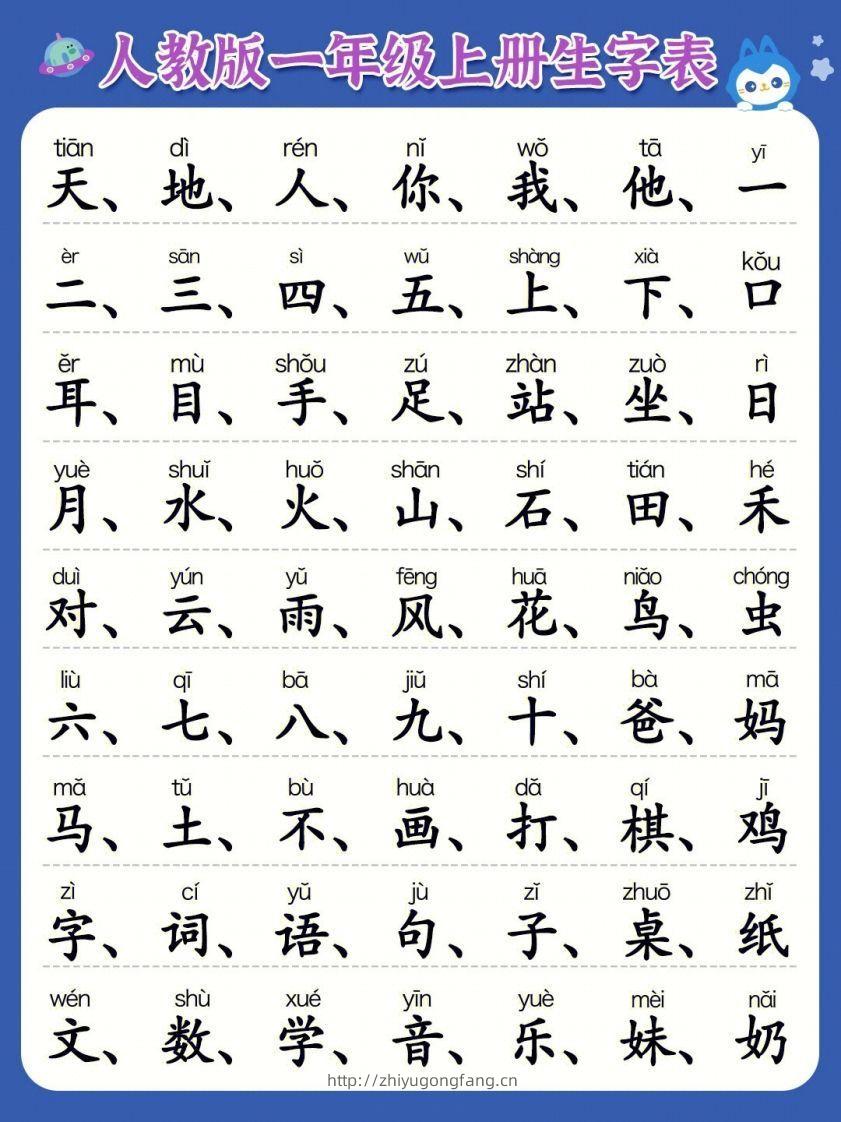 人教版一年级上册生字表
tiān dì rén nǐ wǒ tā yī
天、地、人、你、我、他、一
èr sān sì wǔ shàng xià kǒu
二、三、四、五、上、下、口
ěr mù shǒu zú zhàn zuò rì
耳、目、手、足、站、坐、日
yuè shuǐ huǒ shān shí tián hé
月、水、火、山、石、田、禾
duì yún yǔ fēng huā niǎo chóng
对、云、雨、风、花、鸟、虫
liù qī bā jiǔ shí bà mā
六、七、八、九、十、爸、妈
mǎ tǔ bù huà dǎ qí jī
马、土、不、画、打、棋、鸡
zì cí yǔ jù zǐ zhuō zhǐ
字、词、语、句、子、桌、纸
wén shù xué yīn yuè mèi nǎi
文、数、学、音、乐、妹、奶
http://zhiyugongfang.cn